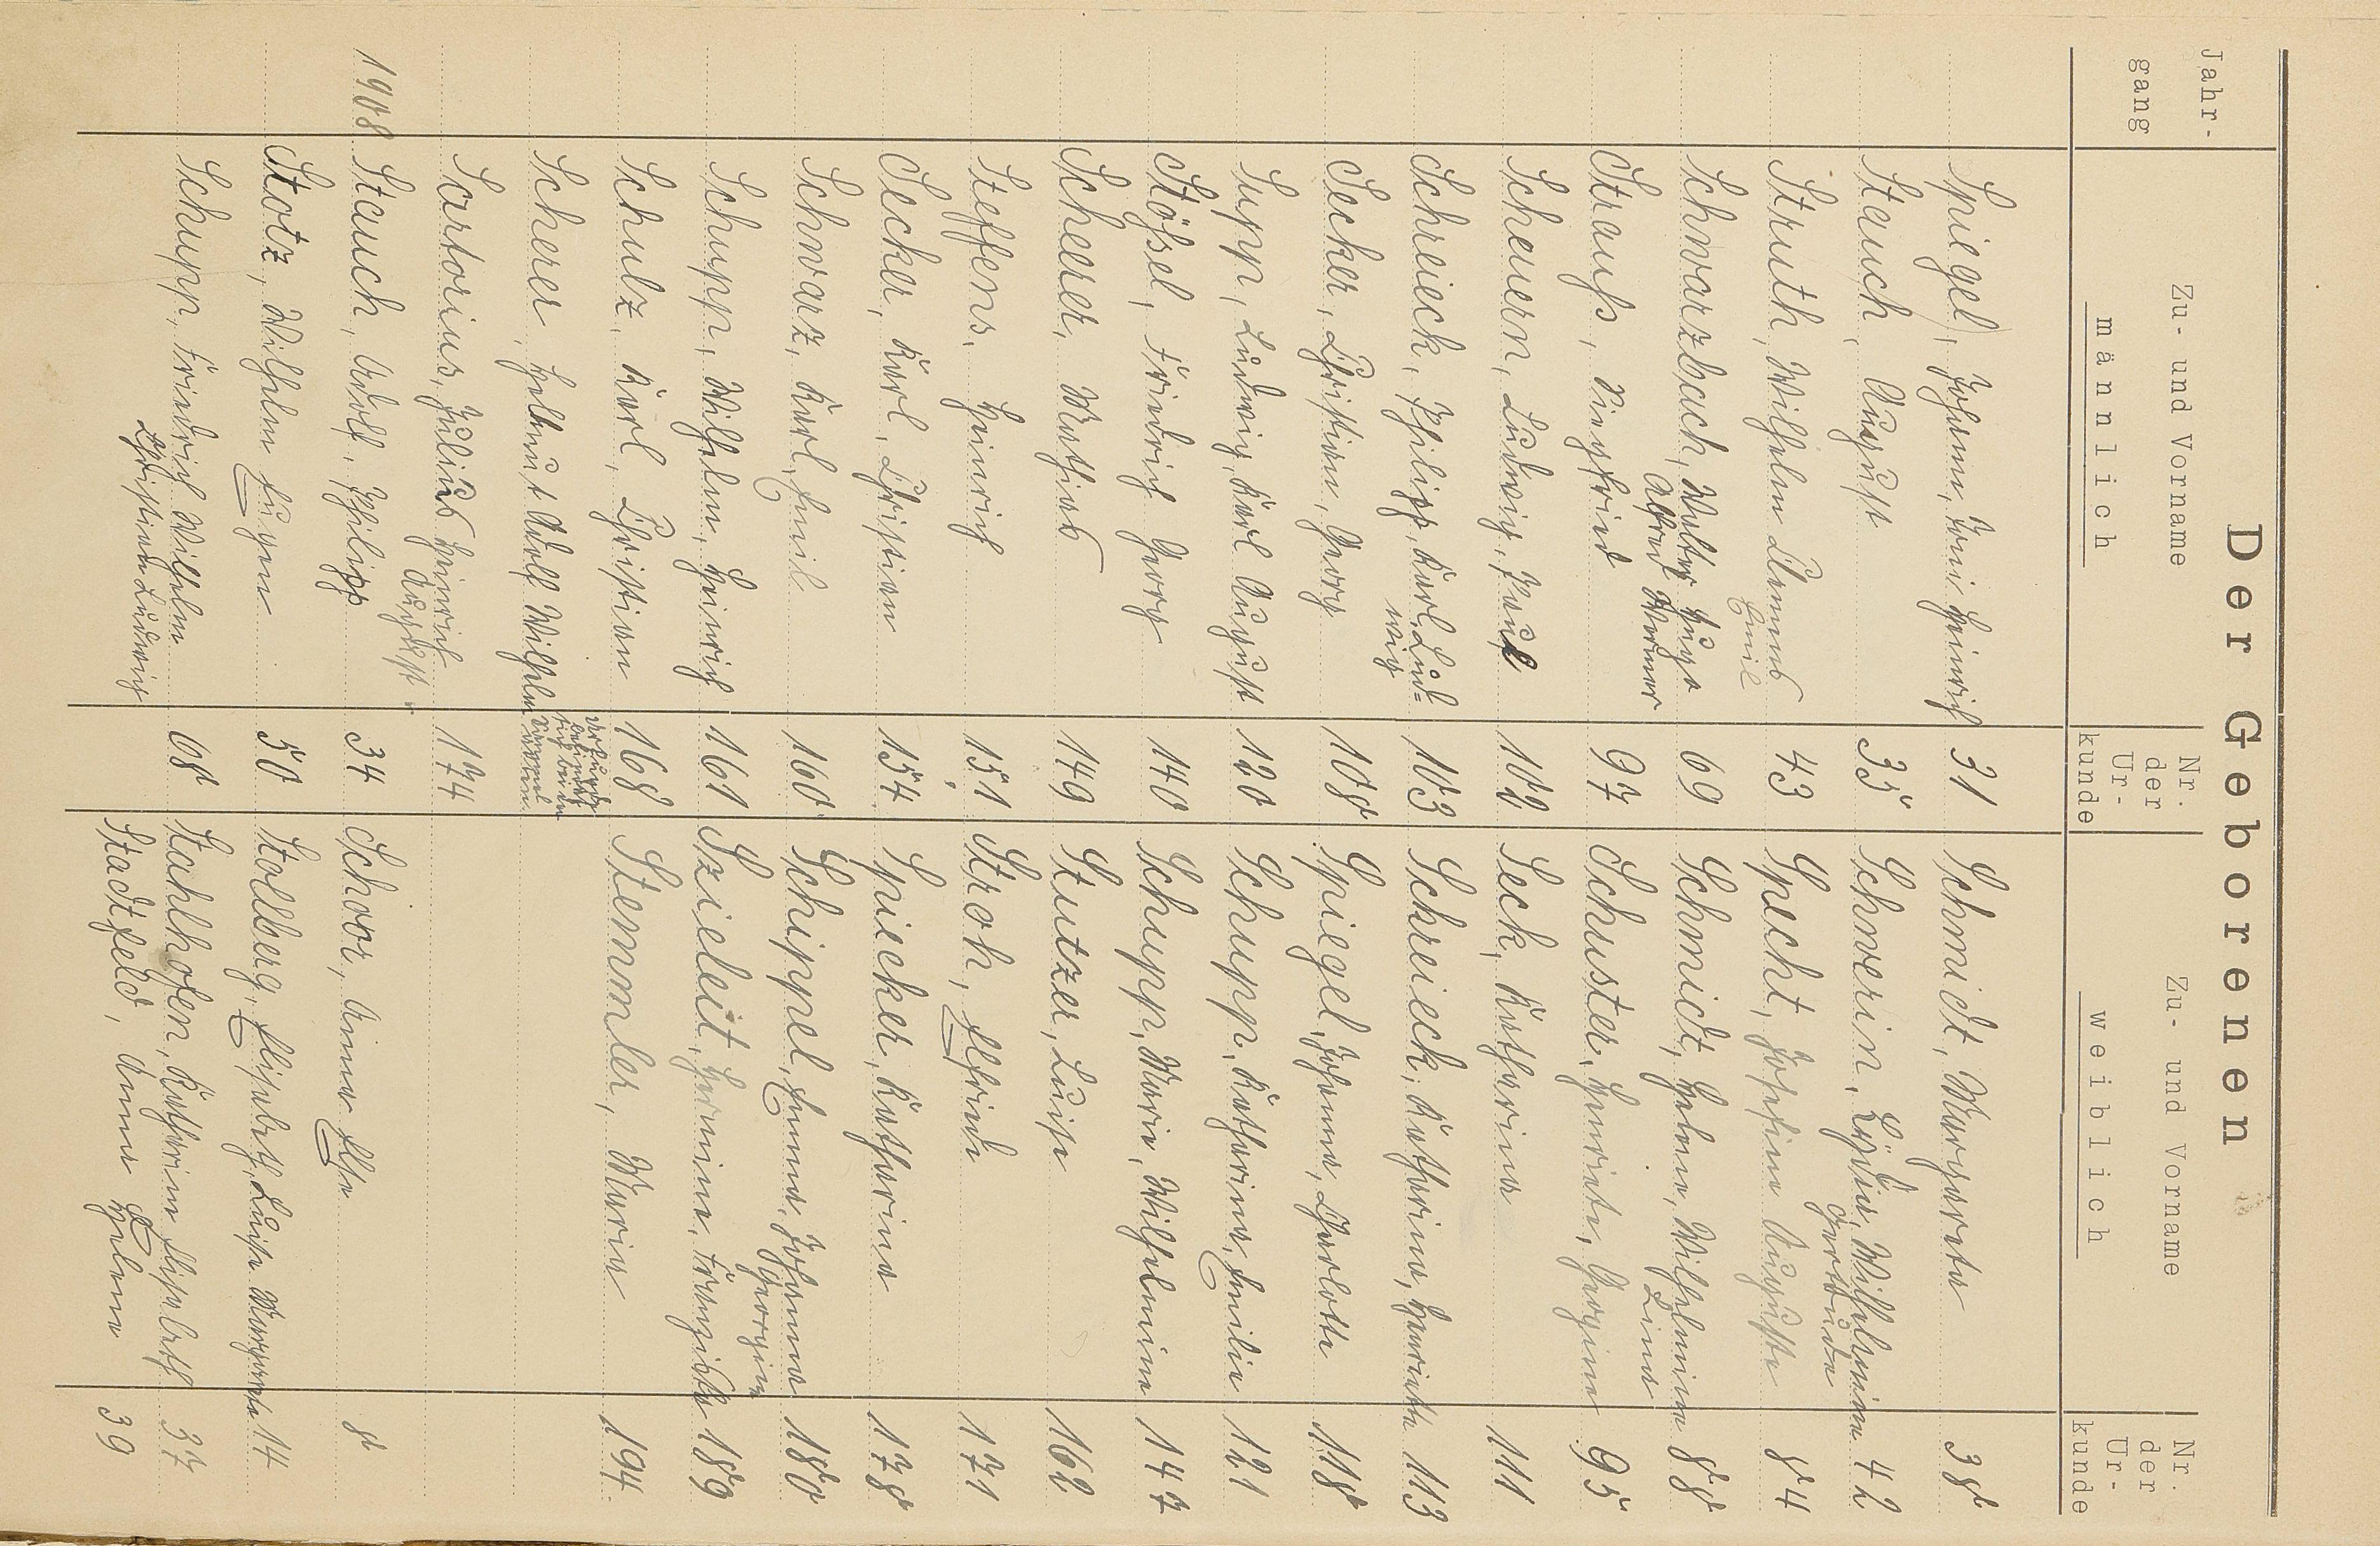 Der Geborenen
Jahr-
gang
Zu- und Vorname
männlich
Nr.
der
Ur-
kunde
Zu- und Vorname
weiblich
Nr.
der
Ur-
kunde
Spiegel, Johann, Heinrich 31 Schmidt, Margareta 38
Stauch, August 35 Schwerin, Lydia, Wilhelmine 42
Gertrude
Struth, Wilhelm Clemens 43 Specht, Josefine Auguste 84
Emil
Schwarzbach, Walter Hugo 69 Schmidt, Helene, Wilhelmine 88
Alfred Werner Lina
Strauß, Siegfried 97 Schuster, Henriete, Georgine 95
Scheuern, Ludwig, Paul 102 Seck, Katharina 111
Schreieck, Philipp, Karl, Lud= 103 Schreieck, Katharina, Henriette 113
wig
Secker, Christian, Georg 108 Spiegel, Johanna, Charlotte 118
Supp, Ludwig, Karl August 120 Schupp, Katharina, Emilie 121
Stößel, Friedrich Georg 140 Schupp, Marie, Wilhelmine 147
Scheerer, Mathias 149 Stutzer, Luise 162
Steffens, Heinrich 151 Stroh, Elfriede 171
Secker, Karl, Christian 154 Spiecker, Katharina 178
Schwarz, Karl, Emil 160 Schippel, Emma, Johanna 180
Georgine
Schupp, Wilhelm, Heinrich 161 Szieleit, Hermine, Franziska 189
Schulz, Karl, Christian 168 Stemmler, Maria 194
Scherer, Helmut Adolf Wilhelm
Sartorius, Julius Heinrich 174
August
1908 Stauch, Adolf, Philipp 34 Schoor, Anna Else 8
Stotz, Wilhelm Eugen 50 Stollberg, Elisabeth, Luise Margareta 14
Schupp, Friedrich Wilhelm 68 Stahlhofen, Katharine Elisabeth 37
Christian Ludwig
Stadtfeld, Anna Helene 39